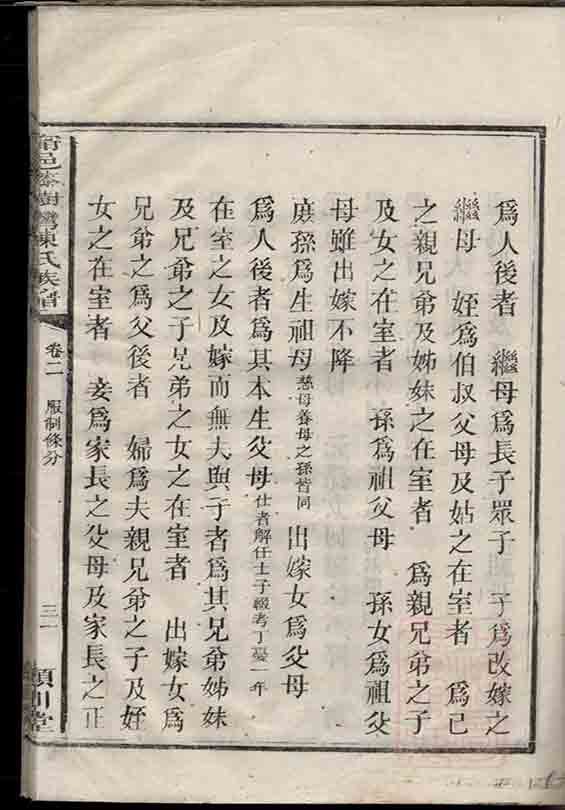 爲人後者　繼母爲長子眾子　子爲改嫁之
繼母　姪爲伯叔父母及姑之在室者　爲己
之親兄弟及姊妹之在室者　爲親兄弟之子
及女之在室者　孫爲祖父母　孫女爲祖父
母雖出嫁不降
庶孫爲生祖母慈母養母之孫皆同　出嫁女爲父母
爲人後者爲其本生父母仕者解任士子輟考丁憂一年
在室之女及嫁而無夫與子者爲其兄弟姊妹
及兄弟之子兄弟之女之在室者　出嫁女爲
兄弟之爲父後者　婦爲夫親兄弟之子及姪
女之在室者　妾爲家長之父母及家長之正
甯邑漆樹灣陳氏族譜　卷二　服制條分　三　潁川堂